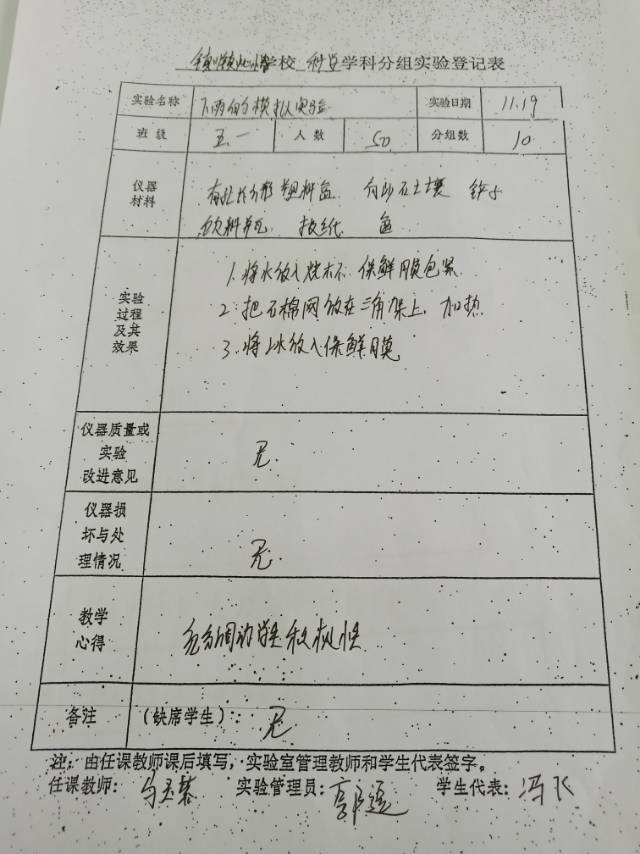 学校 科学 学科分组实验登记表
实验名称 下雨的模拟实验 实验日期 11.19
班级 五一 人数 50 分组数 10
仪器材料 有孔长方形塑料盒 向 石土壤 铲子
饮料瓶 报纸 盆
实验过程及其效果 1.将水放入烧杯 保鲜膜包紧
2.把石棉网放在三角架上,加热
3.将冰放入保鲜膜
仪器质量或实验改进意见 无.
仪器损坏与处理情况 无.
教学心得 充分调动学生积极性
备注 (缺席学生): 无
注:由任课教师课后填写,实验室管理教师和学生代表签字。
任课教师: 马 实验管理员: 学生代表:冯飞